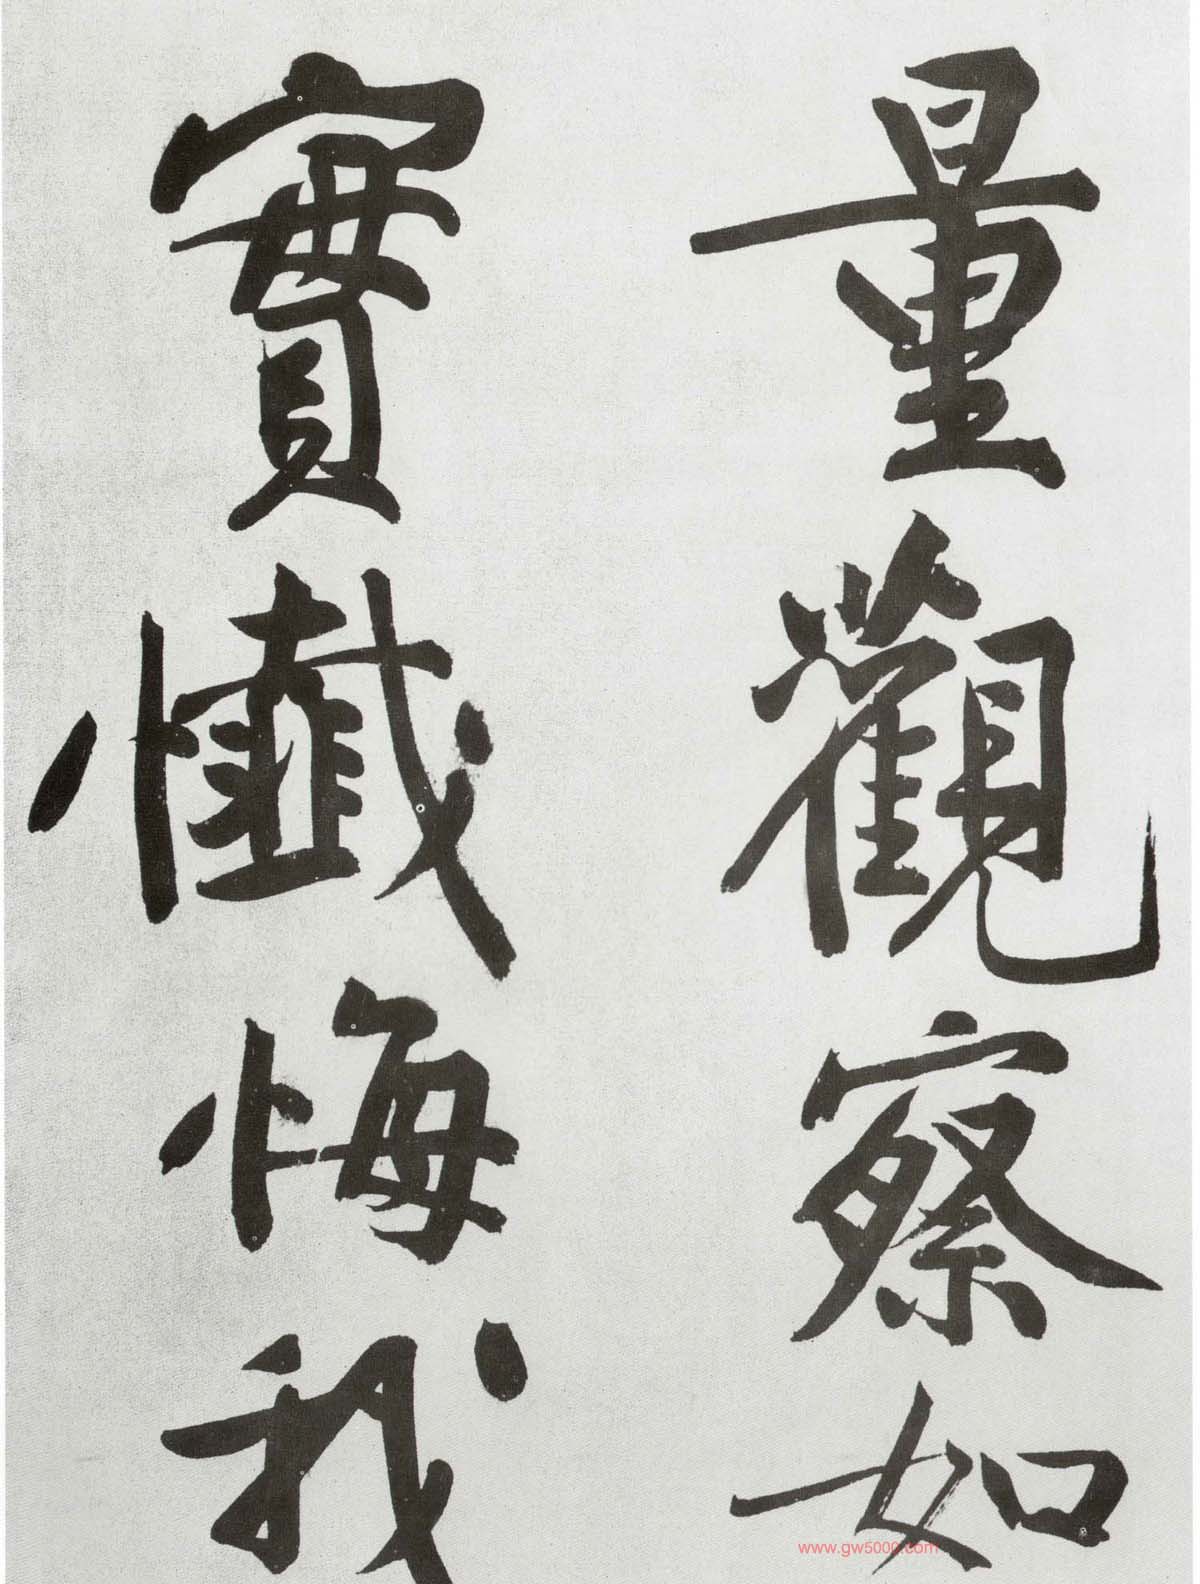 量觀察如
實懺悔我
www.gw5000.com